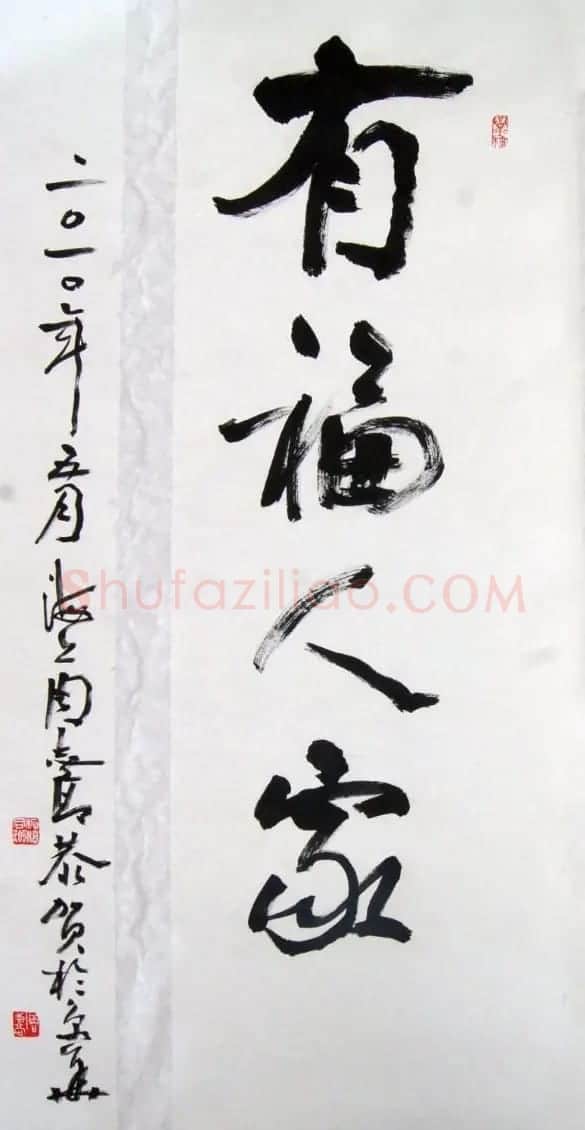 有福人家
二〇一〇年五月海上周喜郎恭贺於京華
Shufaziliao.COM